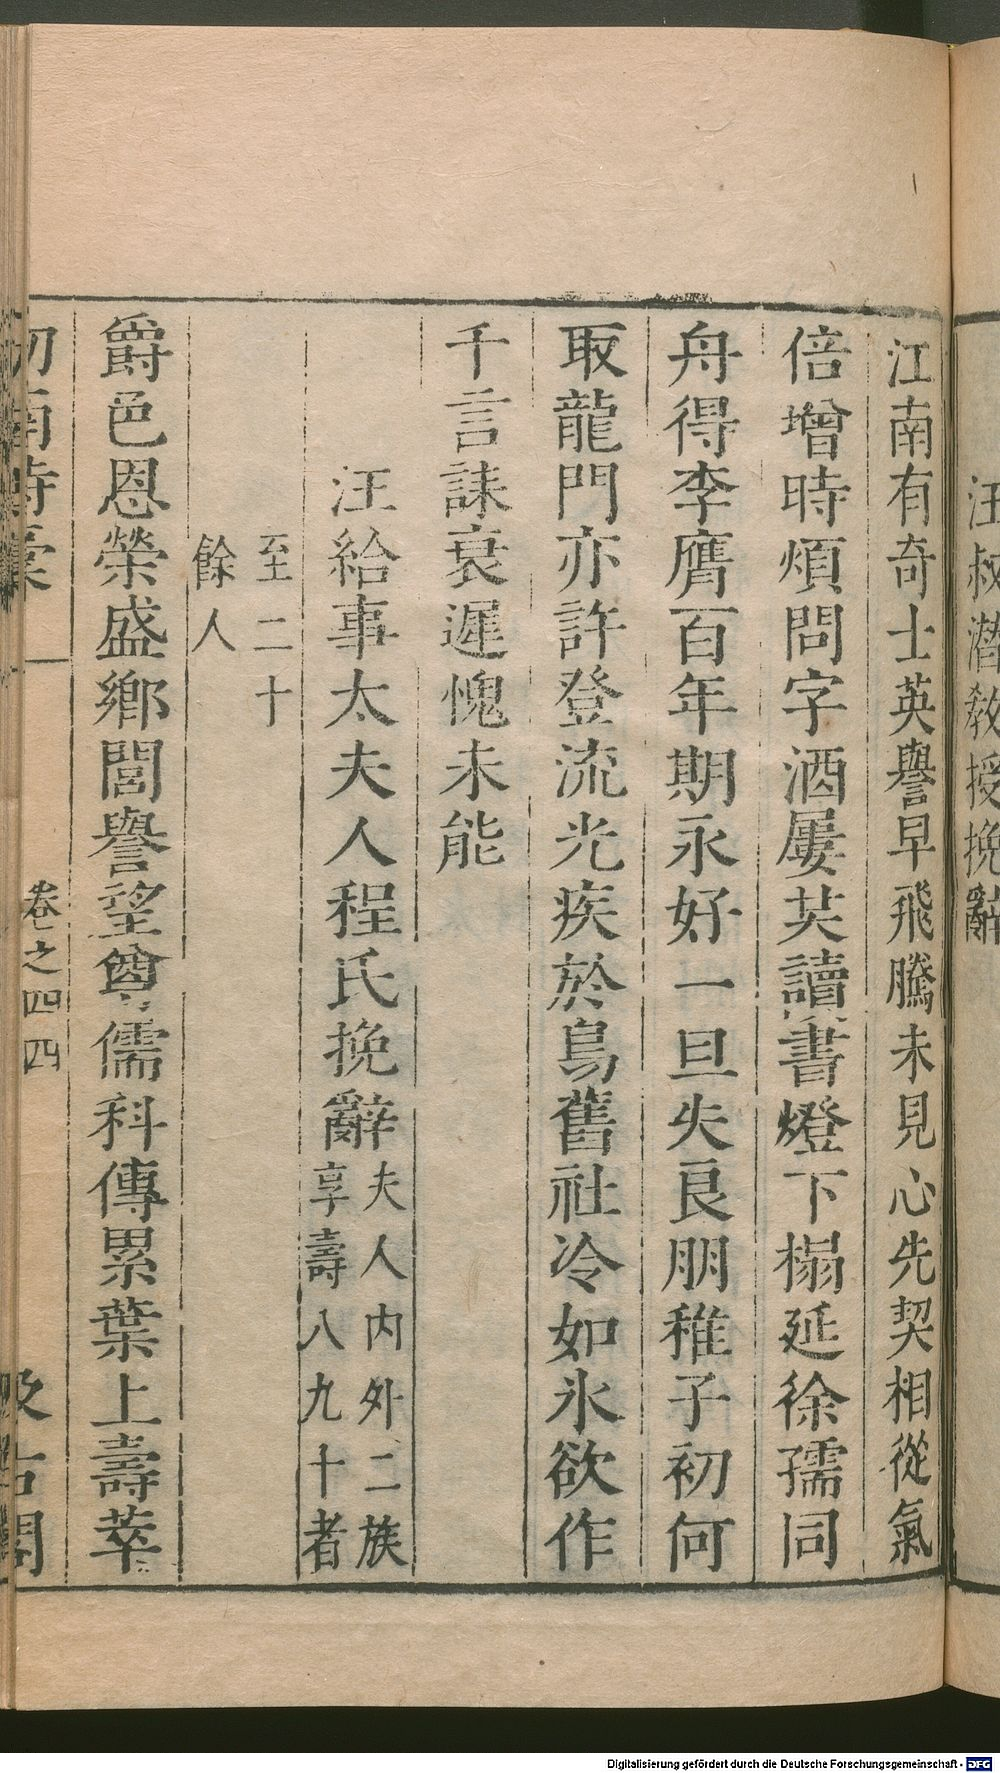 汪叔潛教授挽辭
江南有奇士英譽早飛騰未見心先契相從氣
倍增時煩問字酒屢共讀書燈下榻延徐孺同
舟得李膺百年期永好一旦失良朋稚子初何
取龍門亦許登流光疾於鳥舊社冷如氷欲作
千言誄衰遲愧未能
汪給事太夫人程氏挽辭夫人內外二族
享壽八九十者
至二十
餘人
爵邑恩榮盛鄉閭譽望尊儒科傳累葉上壽萃
南詩
卷之四 四
汲古閣
Digitalisierung gefördert durch die Deutsche Forschungsgemeinschaft - DFG